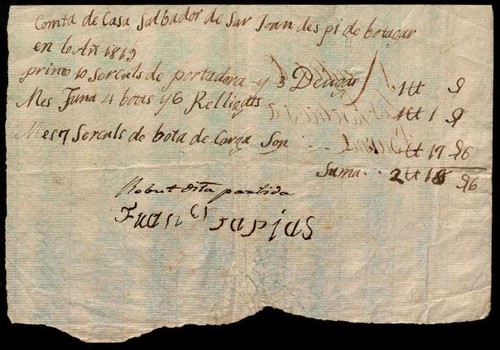 Comta de Casa Salbador de San Joan despi de botagar
en lo Añ 1819
primo 10 Sercals de portadora y 3 De
Mes Juna 4 botas y 6 Relligats 1
Mes 7 Sercals de bota de Carga Son 17 6
Suma 2 18 6
Rebut dita partida
Fran Tapias